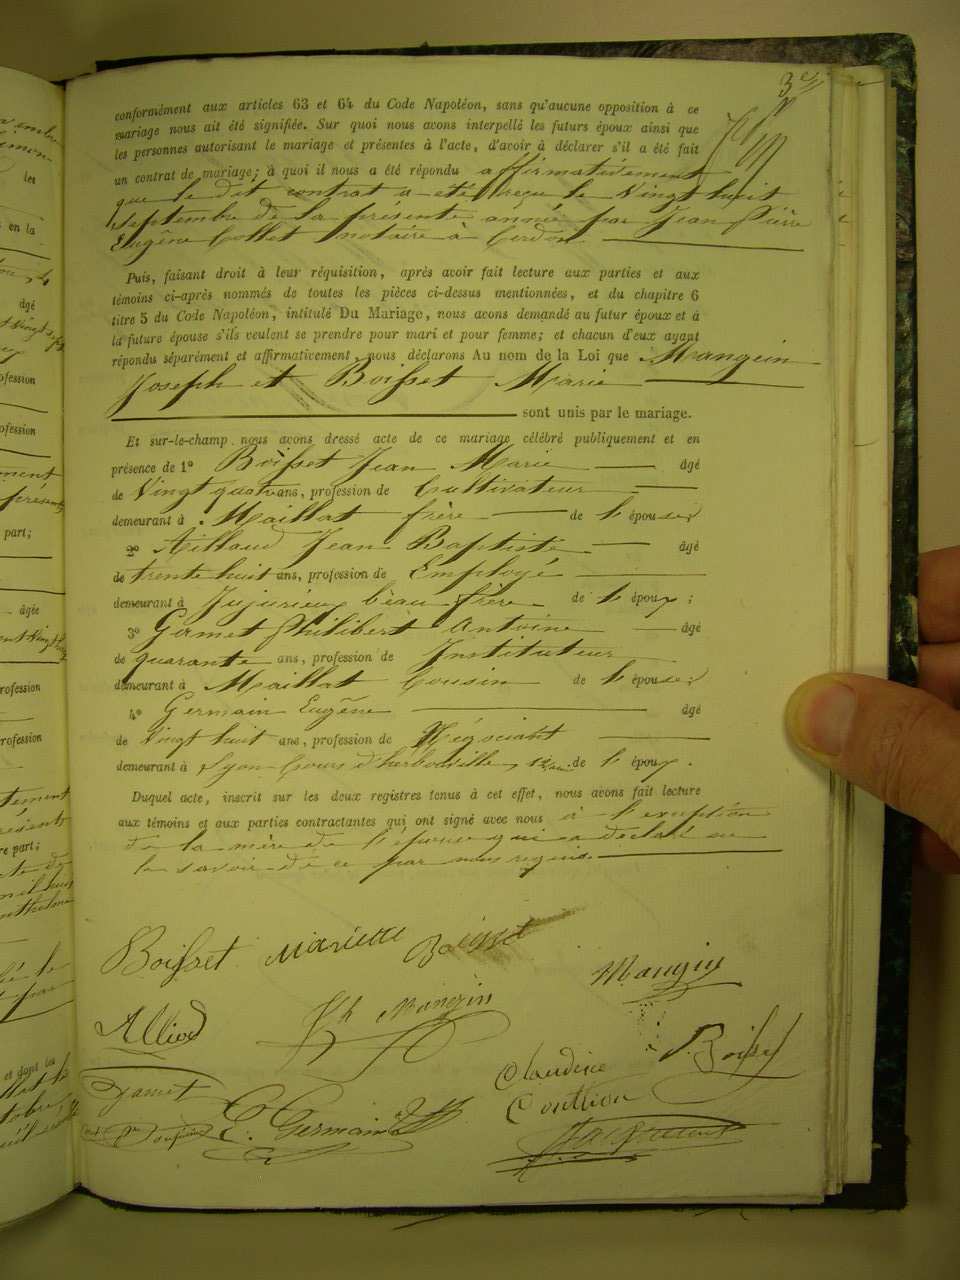 3e
conformément aux articles 63 et 64 du Code Napoléon, sans qu'aucune opposition à ce
mariage nous ait été signifiée. Sur quoi nous avons interpellé les futurs époux ainsi que
les personnes autorisant le mariage et présentes à l'acte, d'avoir à déclarer s'il a été fait
un contrat de mariage; à quoi il nous a été répondu affirmativement
que le dit contrat a été reçu le vingt huit
septembre de la présente année par Jean Pierre
Eugène Collet notaire à Cerdon
Puis, faisant droit à leur réquisition, après avoir fait lecture aux parties et aux
témoins ci-après nommés de toutes les pièces ci-dessus mentionnées, et du chapitre 6
titre 5 du Code Napoléon, intitulé Du Mariage, nous avons demandé au futur époux et à
la future épouse s'ils veulent se prendre pour mari et pour femme; et chacun d'eux ayant
répondu séparément et affirmativement, nous déclarons Au nom de la Loi que Mangein
Joseph et Boisset Marie
sont unis par le mariage.
Et sur-le-champ nous avons dressé acte de ce mariage célébré publiquement et en
présence de 1° Boisset Jean Marie âgé
de Vingt quatre ans, profession de Cultivateur
demeurant à Maillat frère de l'épouse;
2° Aillaud Jean Baptiste âgé
de trente huit ans, profession de Employé
demeurant à Jujurieux beau frère de l'époux;
3° Gamet Philibert Antoine âgé
de quarante ans, profession de Instituteur
demeurant à Maillat Cousin de l'épouse;
4° Germain Eugène âgé
de Vingt huit ans, profession de Négociant
demeurant à Lyon Cours d'herbouville, 12, ami de l'époux.
Duquel acte, inscrit sur les deux registres tenus à cet effet, nous avons fait lecture
aux témoins et aux parties contractantes qui ont signé avec nous à l'exception
de la mère de l'épouse qui a déclaré ne
le savoir de ce par nous requise.
Boisset Mariette Boisset
Mangin
Alliod Jh Mangin
Claudine J. Boisset
Gamet E. Germain